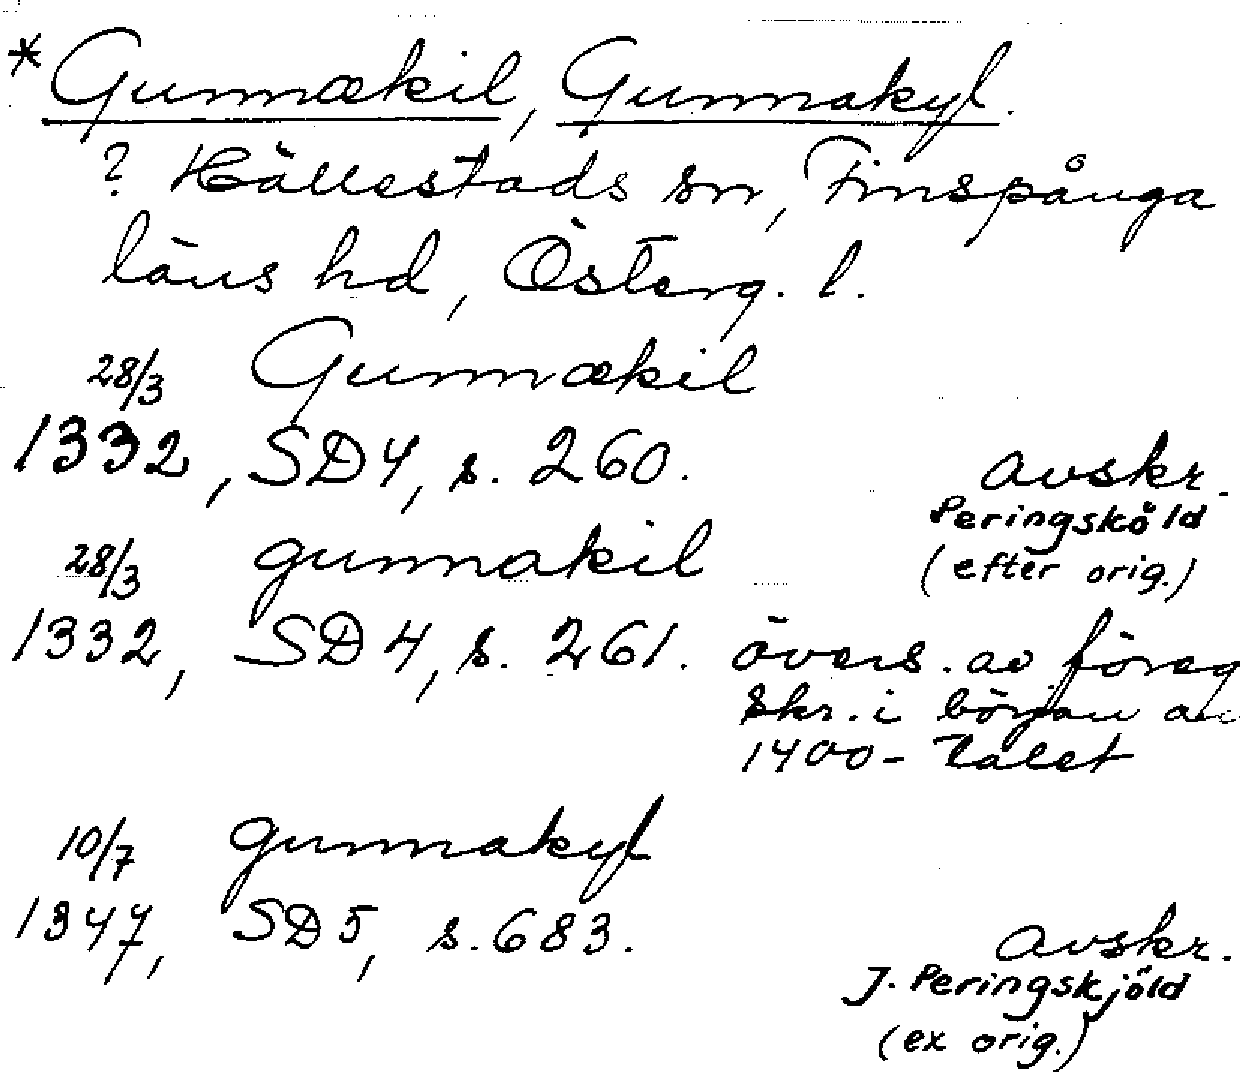 * Gunnækil, Gunnakyl.
? Hällestads sn, Finspånga
läns hd, Österg. l.
28/3 Gunnækil
1332, SD4, s. 260. avskr.
Peringsköld
(efter orig.)
28/3 gunnakil
1332, SD4, s. 261. övers. av föreg
skr. i början av
1400-talet
10/7 gunnakyl
1347, SD5, s. 683. avskr.
J. Peringskjöld
(ex orig.)